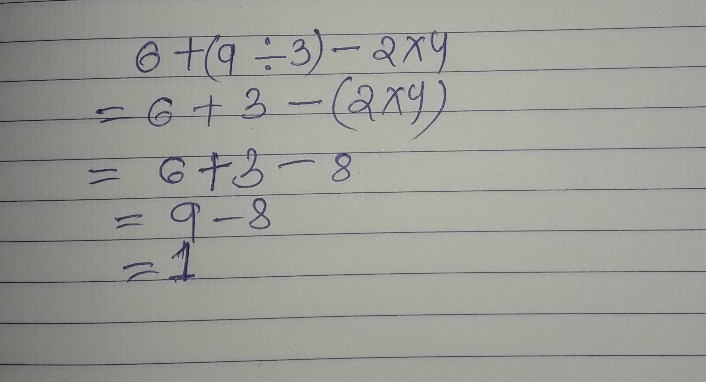 6+(9÷3)-2×4
= 6+3-(2×4)
= 6+3-8
= 9-8
= 1